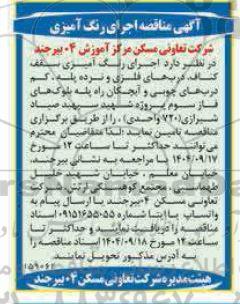 آگهی مناقصه اجرای رنگ آمیزی
شرکت تعاونی مسکن مرکز آموزش ۰۴ بیرجند
در نظر دارد اجرای رنگ آمیزی سقف
کناف، درب‌های فلزی و نرده پله، کم
درب‌های چوبی و آبچکان راه پله بلوک‌های
فاز سوم پروژه شهید سپهبد صیاد
شیرازی (۷۲۰ واحدی)، را از طریق برگزاری
مناقصه تامین نماید. لذا متقاضیان محترم
می توانند حداکثر تا ساعت ۱۲ مورخ
۱۴۰۴/۰۹/۱۷ با مراجعه به نشانی بیرجند،
خیابان معلم، خیابان شهید خلیل
طهماسبی، مجتمع کوهسنگی ارتش، شرکت
تعاونی مسکن ۰۴ بیرجند یا ارسال پیام به
واتساپ یا ایتا شماره ۰۹۱۵۱۶۵۵۰۵۵ اسناد
مناقصه را دریافت نمایند و حداکثر تا
ساعت ۱۲ مورخ ۱۴۰۴/۰۹/۱۸ اسناد مناقصه را
به آدرس مذکور تحویل نمایند.
۱۵۹۰۶۴
هیئت مدیره شرکت تعاونی مسکن ۰۴ بیرجند